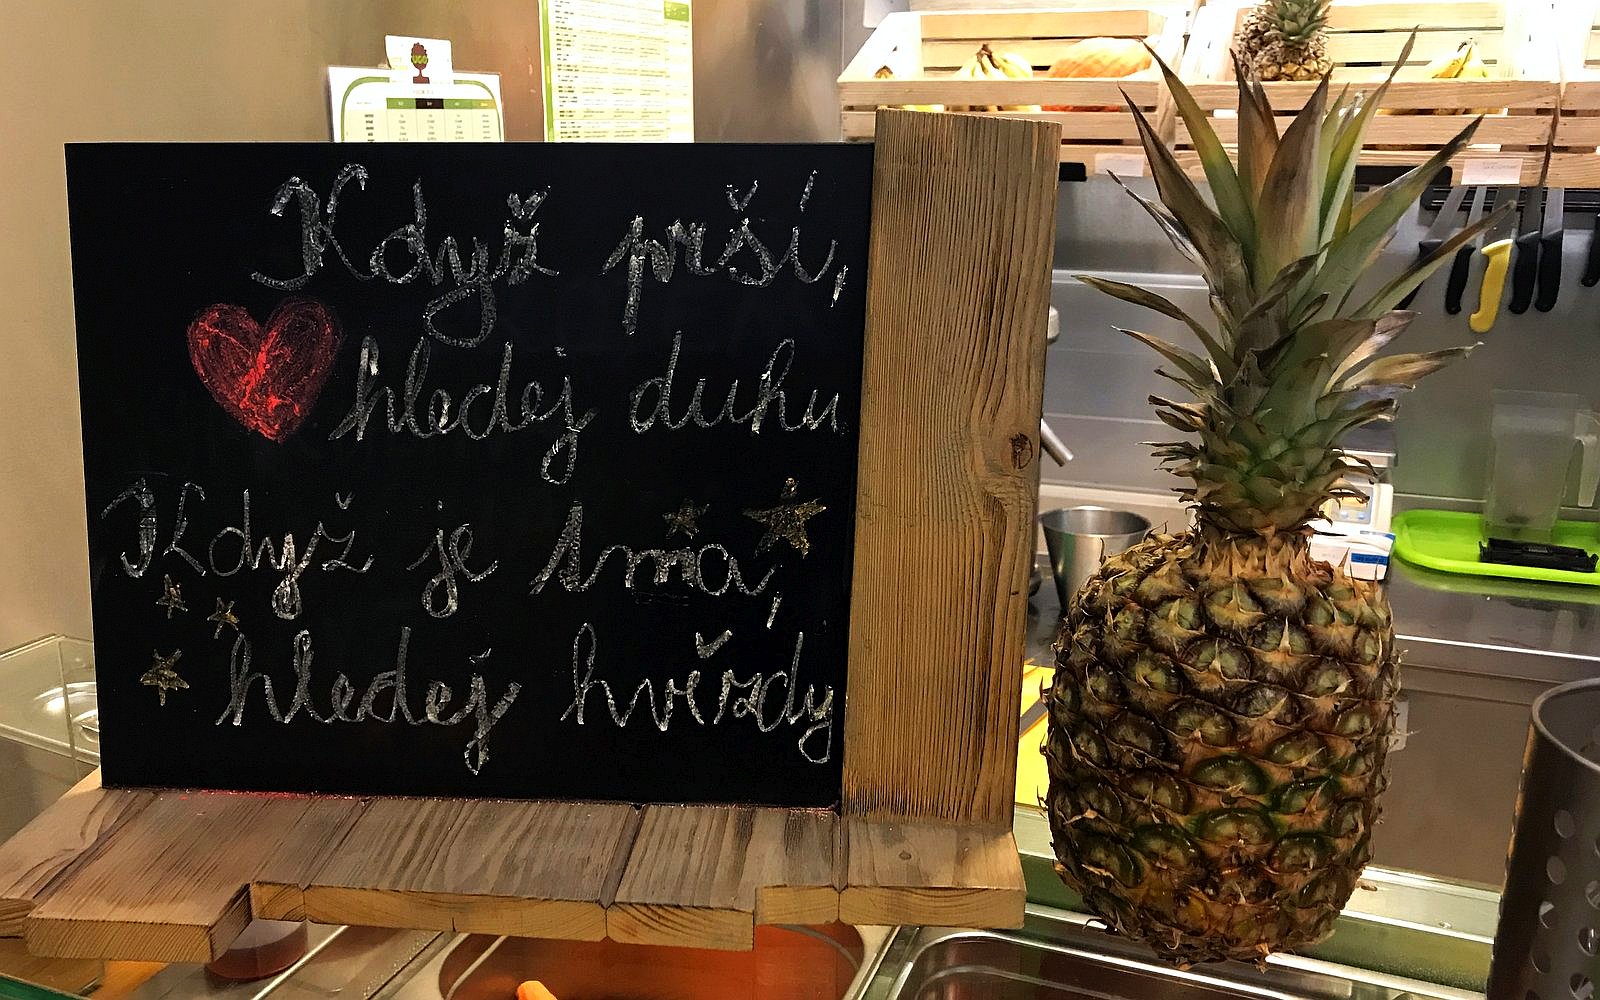 Když prší,
hledej duhu
Když je tma,
hledej hvězdy